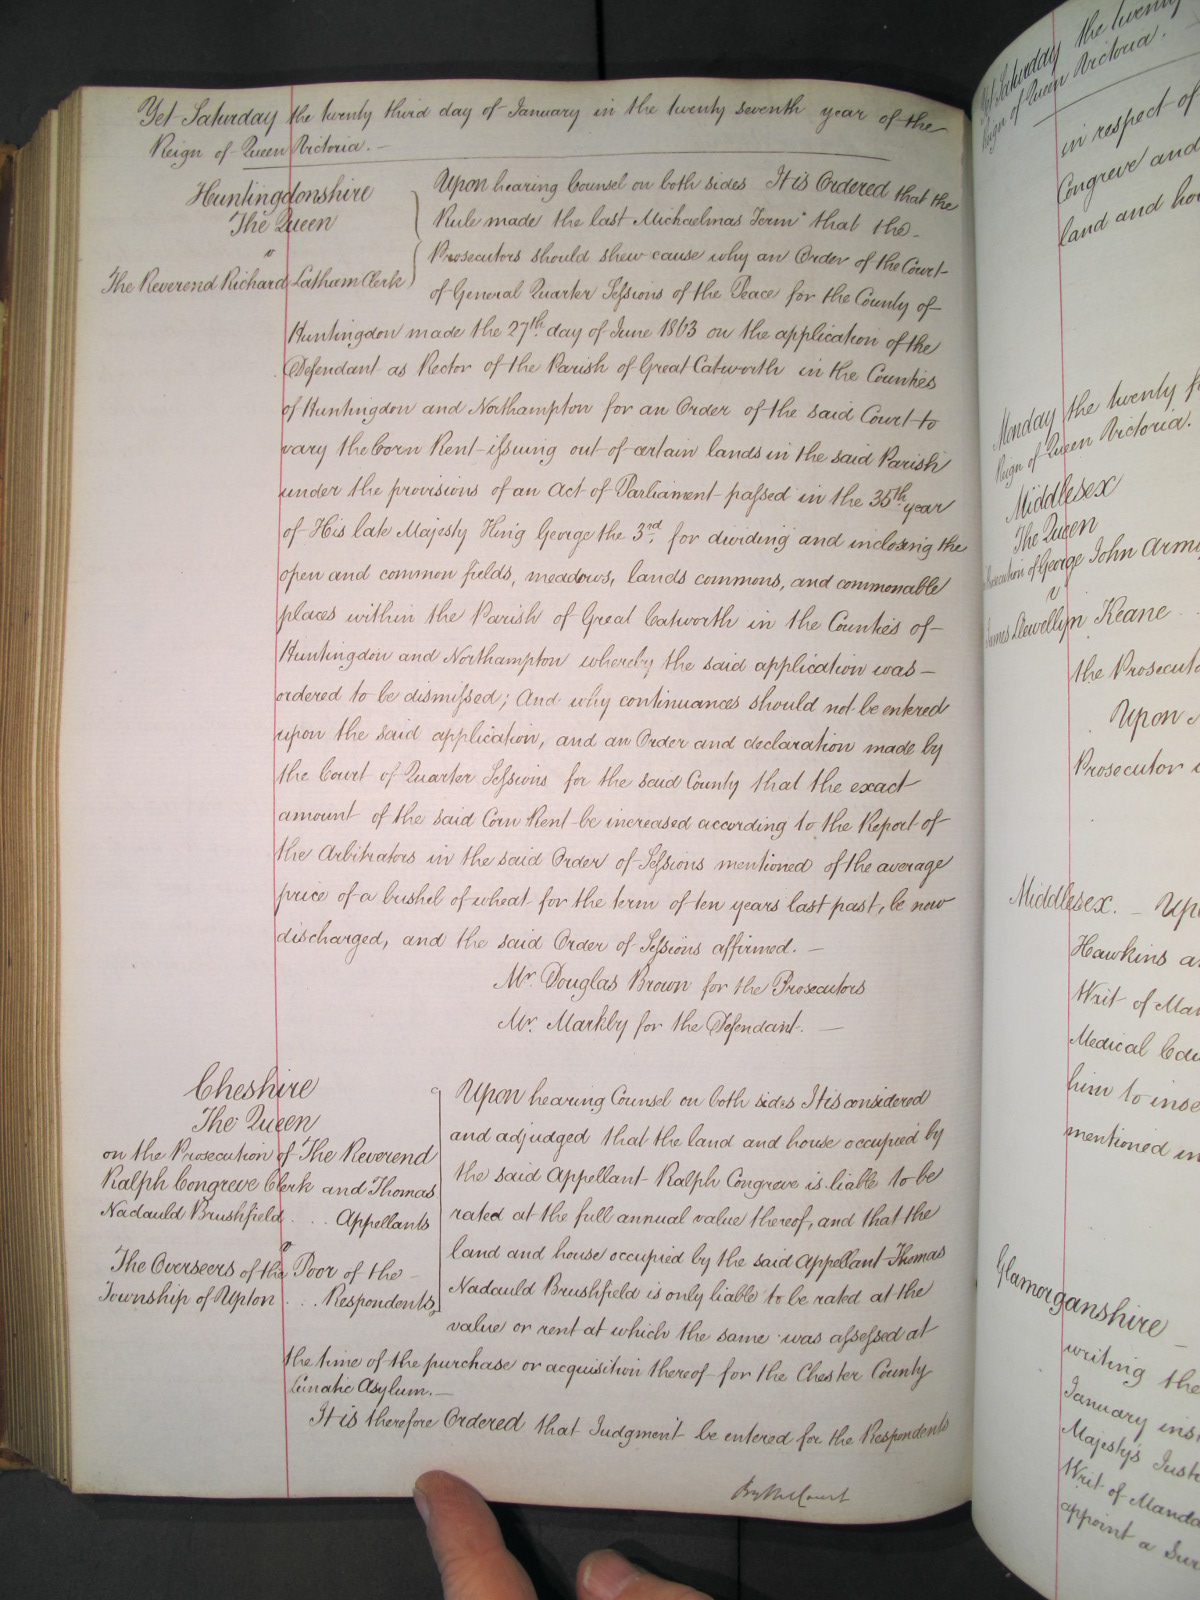 Yet Saturday the twenty third day of January in the twenty seventh year of the
Reign of Queen Victoria. —
Huntingdonshire
The Queen
v
The Reverend Richard Latham Clerk
Upon hearing Counsel on both sides It is Ordered that the
Rule made the last Michaelmas Term that the
Prosecutors should shew cause why an Order of the Court
of General Quarter Sessions of the Peace for the County of
Huntingdon made the 27th. day of June 1863 on the application of the
Defendant as Rector of the Parish of Great Catworth in the Counties
of Huntingdon and Northampton for an Order of the said Court to
vary the Corn Rent issuing out of certain lands in the said Parish
under the provisions of an Act of Parliament passed in the 35th. year
of His late Majesty King George the 3rd. for dividing and inclosing the
open and common fields, meadows, lands commons, and commonable
places within the Parish of Great Catworth in the Counties of
Huntingdon and Northampton whereby the said application was
ordered to be dismissed; And why continuances should not be entered
upon the said application, and an Order and declaration made by
the Court of Quarter Sessions for the said County that the exact
amount of the said Corn Rent be increased according to the Report of
the Arbitrators in the said Order of Sessions mentioned of the average
price of a bushel of wheat for the term of ten years last past, be now
discharged, and the said Order of Sessions affirmed. —
Mr. Douglas Brown for the Prosecutors
Mr. Markby for the Defendant. —
Cheshire
The Queen
on the Prosecution of The Reverend
Ralph Congreve Clerk and Thomas
Nadauld Brushfield . . . Appellants
v
The Overseers of the Poor of the
Township of Upton . . . Respondents
Upon hearing Counsel on both sides It is considered
and adjudged that the land and house occupied by
the said Appellant Ralph Congreve is liable to be
rated at the full annual value thereof, and that the
land and house occupied by the said Appellant Thomas
Nadauld Brushfield is only liable to be rated at the
value or rent at which the same was assessed at
the time of the purchase or acquisition thereof for the Chester County
Lunatic Asylum. —
It is therefore Ordered that Judgment be entered for the Respondents
By the Court
Yet Saturday the twenty
Reign of Queen Victoria.
in respect of
Congreve and
land and hou
Monday the twenty f
Reign of Queen Victoria.
Middlesex
The Queen
Prosecution of George John Arm
v
James Llewellyn Keane
the Prosecuto
Upon
Prosecutor
Middlesex. — Up
Hawkins a
Writ of Man
Medical
him to inse
mentioned in
Glamorganshire —
writing the
January ins
Majesty's Just
Writ of Manda
appoint a Sur